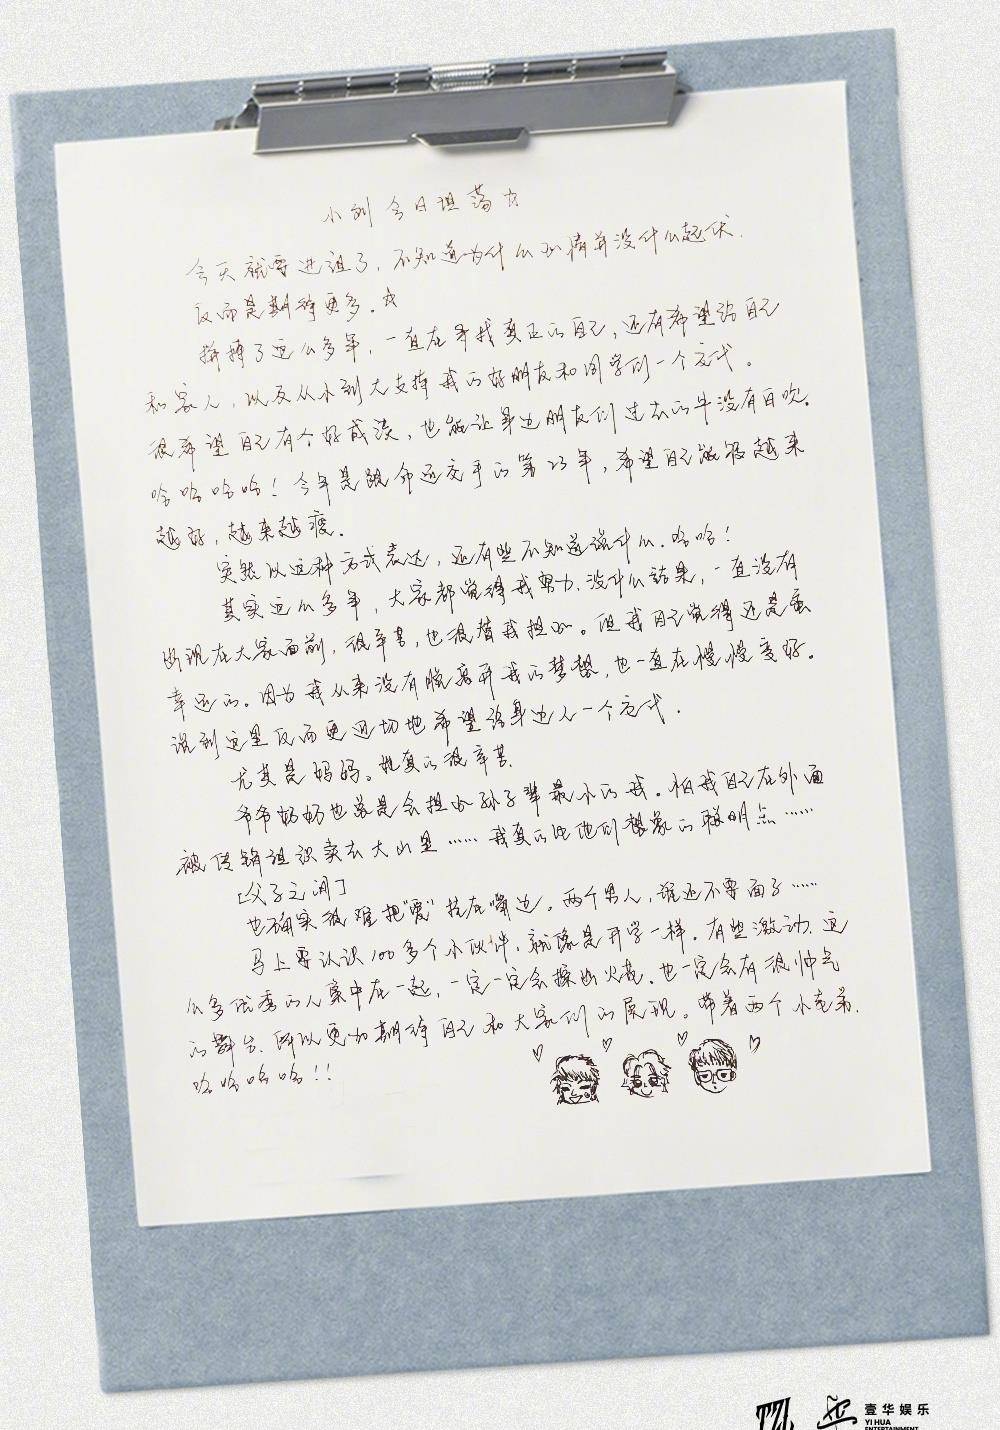 小刘今日坦荡ヵ
今天就要进组了，不知道为什么心情并没什么起伏.
反而是期待更多.☆
拼搏了这么多年，一直在寻找真正的自己，还有希望给自己
和家人，以及从小到大支持我的好朋友和同学们一个交代。
很希望自己有个好成绩，也能让身边朋友们过去的牛没有白吹.
哈哈哈哈！今年是跟命运交手的第23年，希望自己能够越来
越好，越来越疯.
突然以这种方式表达，还有些不知道说什么.哈哈！
其实这么多年，大家都觉得我努力.没什么结果，一直没有
出现在大家面前，很辛苦，也很替我担心。但我自己觉得还是蛮
幸运的。因为我从来没有脱离开我的梦想，也一直在慢慢变好。
说到这里反而更迫切地希望给身边人一个交代.
尤其是妈妈。她真的很辛苦.
爷爷奶奶也总是会担心孙子辈最小的我.怕我自己在外面
被传销组织卖去大山里……我真的比他们想象的聪明点……
[父子之间]
也确实很难把"爱"挂在嘴边。两个男人，谁还不要面子……
马上要认识100多个小伙伴，就像是开学一样.有些激动.这
么多优秀的人集中在一起，一定一定会擦出火花.也一定会有很帅气
的舞台.所以更加期待自己和大家们的展现。带着两个小老弟.
哈哈哈哈！！
壹华娱乐
YI HUA
ENTERTAINMENT